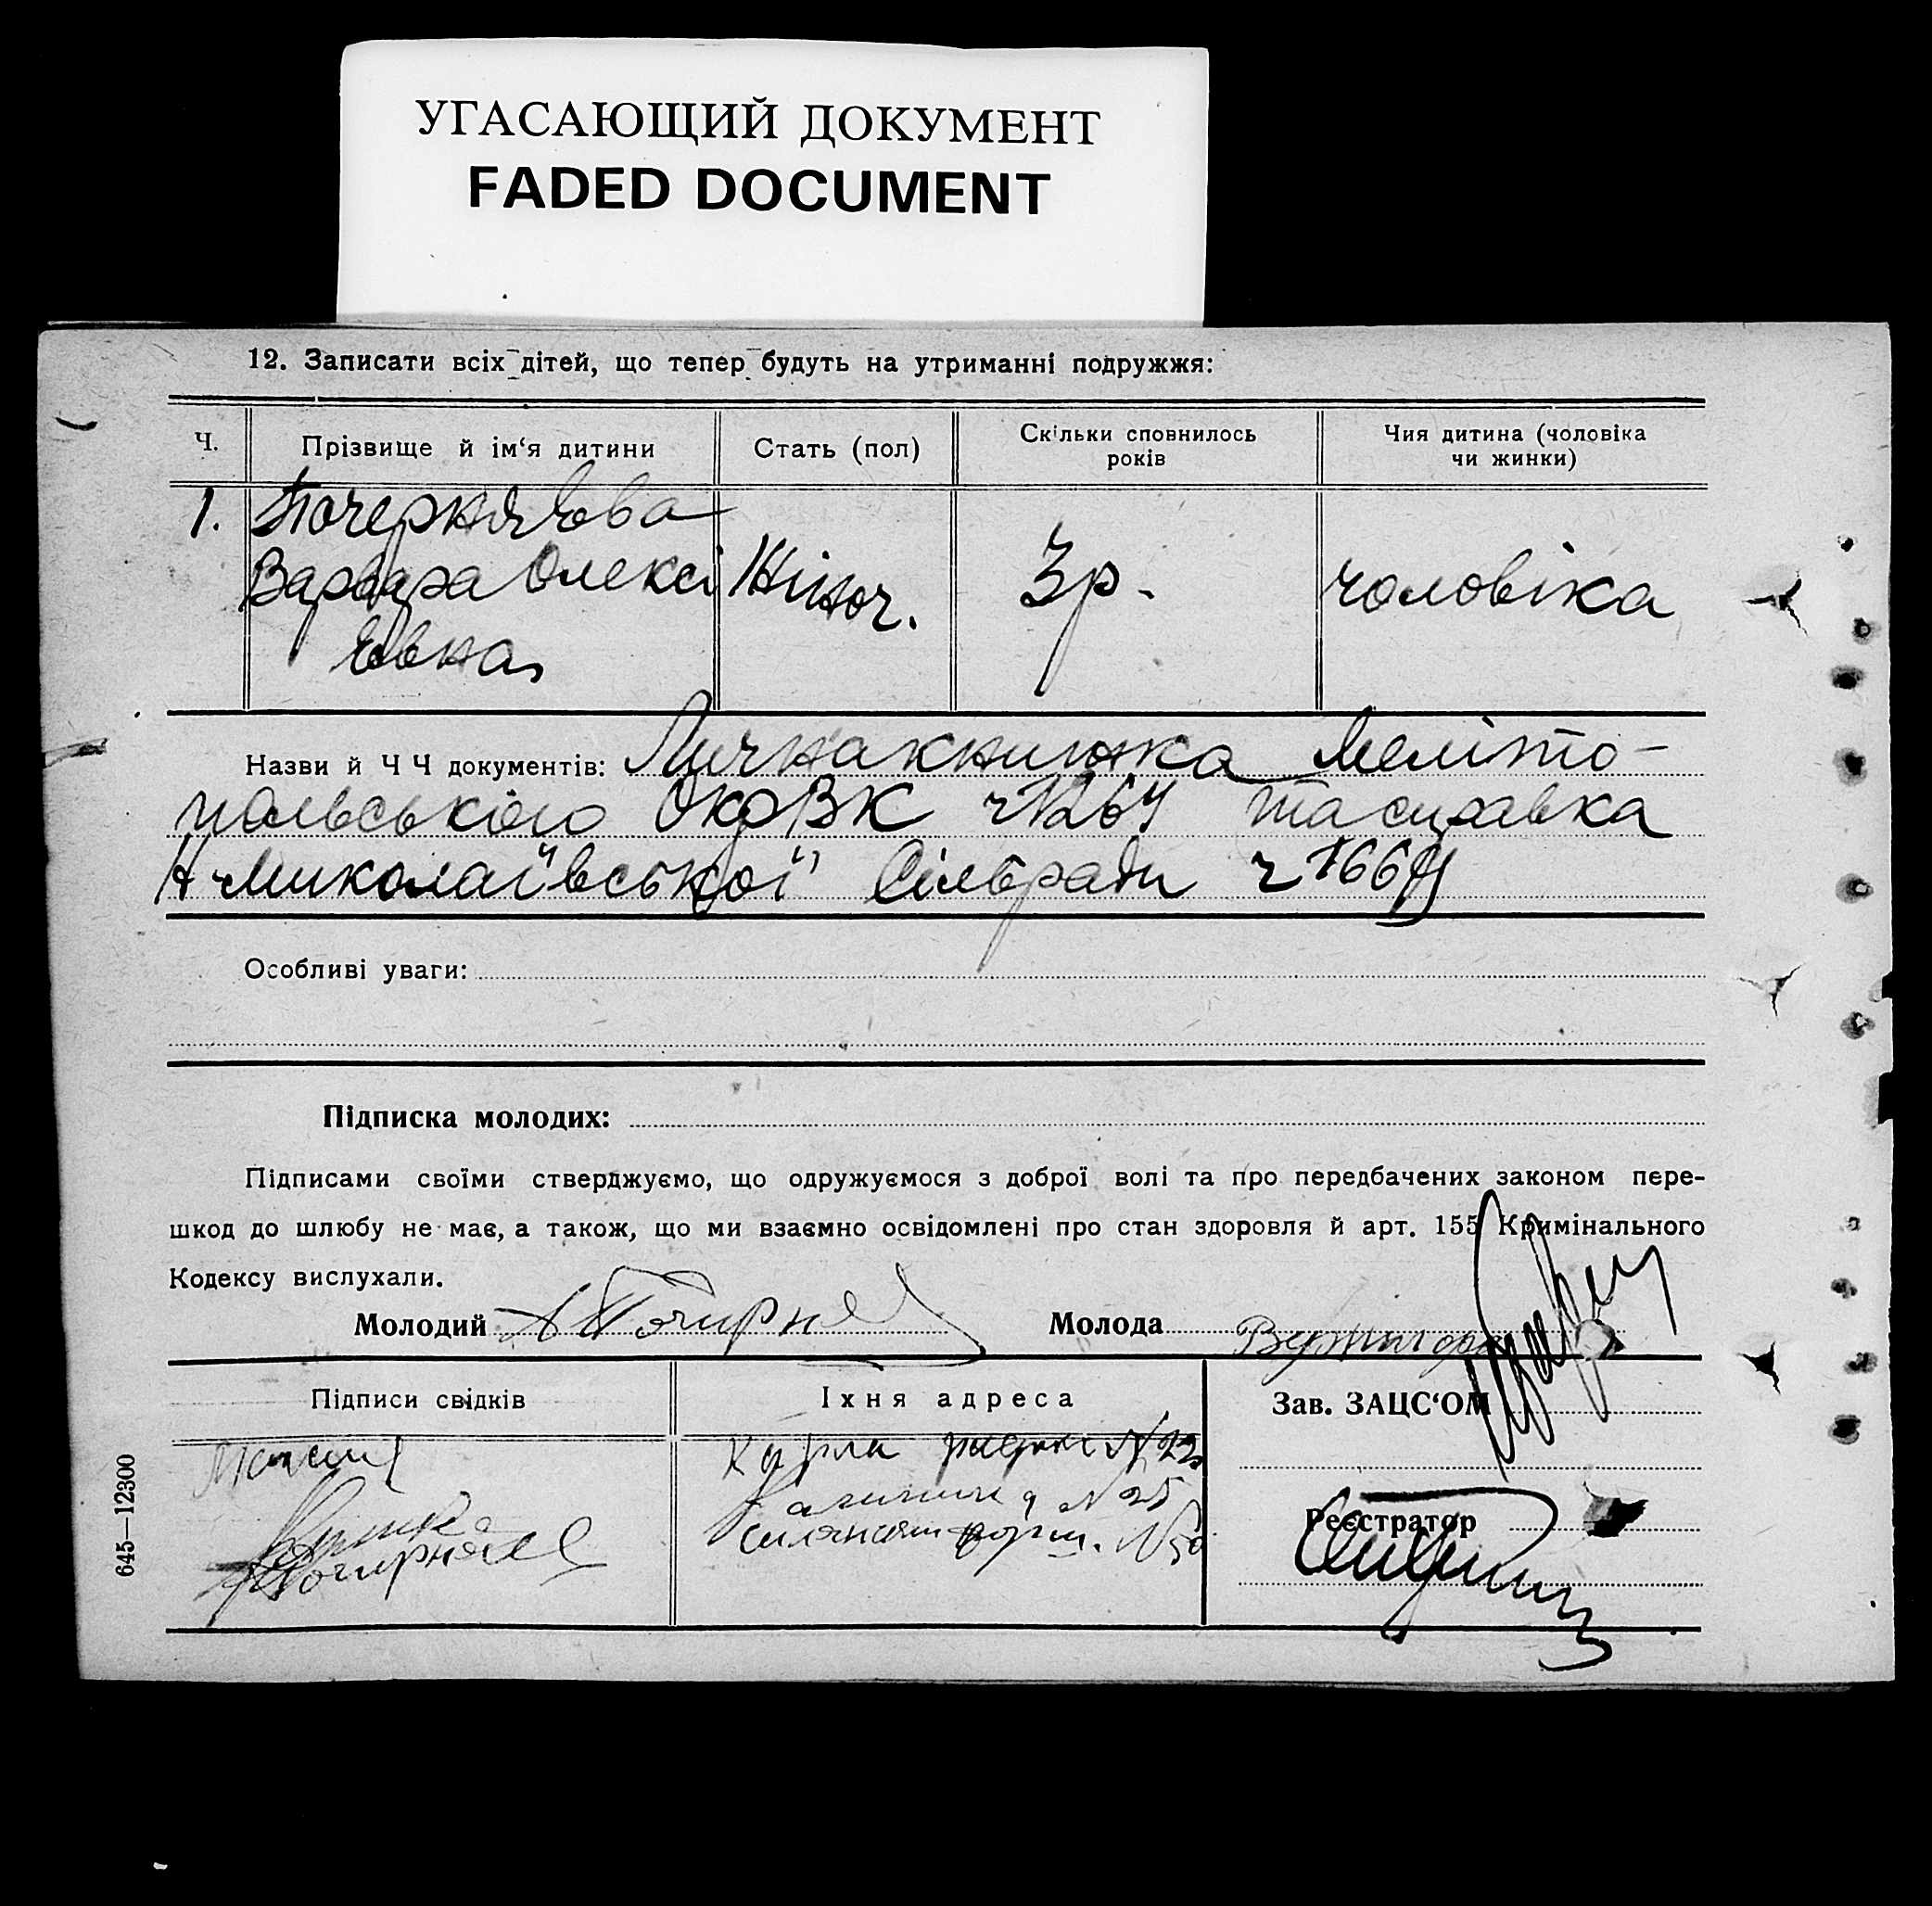 УГАСАЮЩИЙ ДОКУМЕНТ
FADED DOCUMENT
12. Записати всіх дітей, що тепер будуть на утриманні подружжя:
Ч. Прізвище й ім‘я дитини Стать (пол) Скільки сповнилось років Чия дитина (чоловіка чи жинки)
1. Почерняєва
Варвара Олексі Жіноч. 3р. чоловіка
євна
Назви й Ч Ч документів: Личнакнижка Меліто-
польського ОкрВК та справка
Миколаївської Сільради
Особливі уваги:
Підписка молодих:
Підписами своїми стверджуємо, що одружуємося з доброї волі та про передбачених законом пере-
шкод до шлюбу не має, а також, що ми взаємно освідомлені про стан здоровля й арт. 155 Кримінального
Кодексу вислухали.
Молодий Молода
Підписи свідків Їхня адреса Зав. ЗАЦС‘ОМ
Карла
N 25
Реєстратор
645—12300